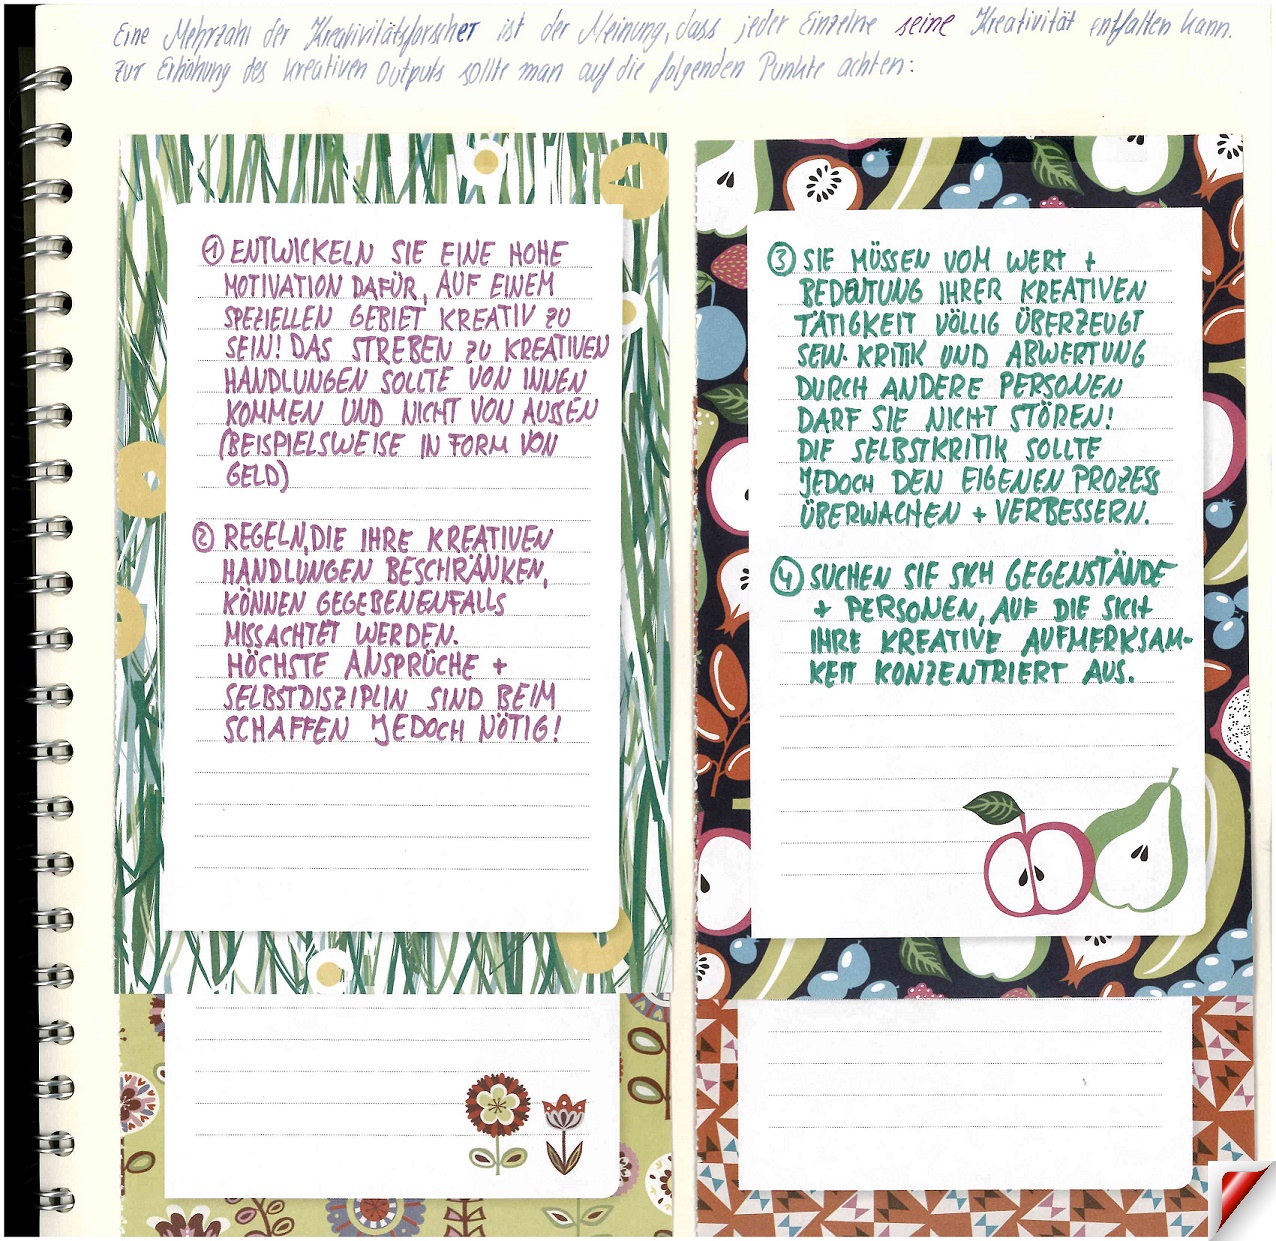 Eine Mehrzahl der Kreativitätsforscher ist der Meinung, dass jeder Einzelne seine Kreativität entfalten kann.
Zur Erhöhung des kreativen Outputs sollte man auf die folgenden Punkte achten:
① ENTWICKELN SIE EINE HOHE
MOTIVATION DAFÜR, AUF EINEM
SPEZIELLEN GEBIET KREATIV ZU
SEIN! DAS STREBEN ZU KREATIVEN
HANDLUNGEN SOLLTE VON INNEN
KOMMEN UND NICHT VON AUSSEN
(BEISPIELSWEISE IN FORM VON
GELD)
② REGELN, DIE IHRE KREATIVEN
HANDLUNGEN BESCHRÄNKEN,
KÖNNEN GEGEBENENFALLS
MISSACHTET WERDEN.
HÖCHSTE ANSPRÜCHE +
SELBSTDISZIPLIN SIND BEIM
SCHAFFEN JEDOCH NÖTIG!
③ SIE MÜSSEN VOM WERT +
BEDEUTUNG IHRER KREATIVEN
TÄTIGKEIT VÖLLIG ÜBERZEUGT
SEIN. KRITIK UND ABWERTUNG
DURCH ANDERE PERSONEN
DARF SIE NICHT STÖREN!
DIE SELBSTKRITIK SOLLTE
JEDOCH DEN EIGENEN PROZESS
ÜBERWACHEN + VERBESSERN.
④ SUCHEN SIE SICH GEGENSTÄNDE
+ PERSONEN, AUF DIE SICH
IHRE KREATIVE AUFMERKSAM-
KEIT KONZENTRIERT AUS.